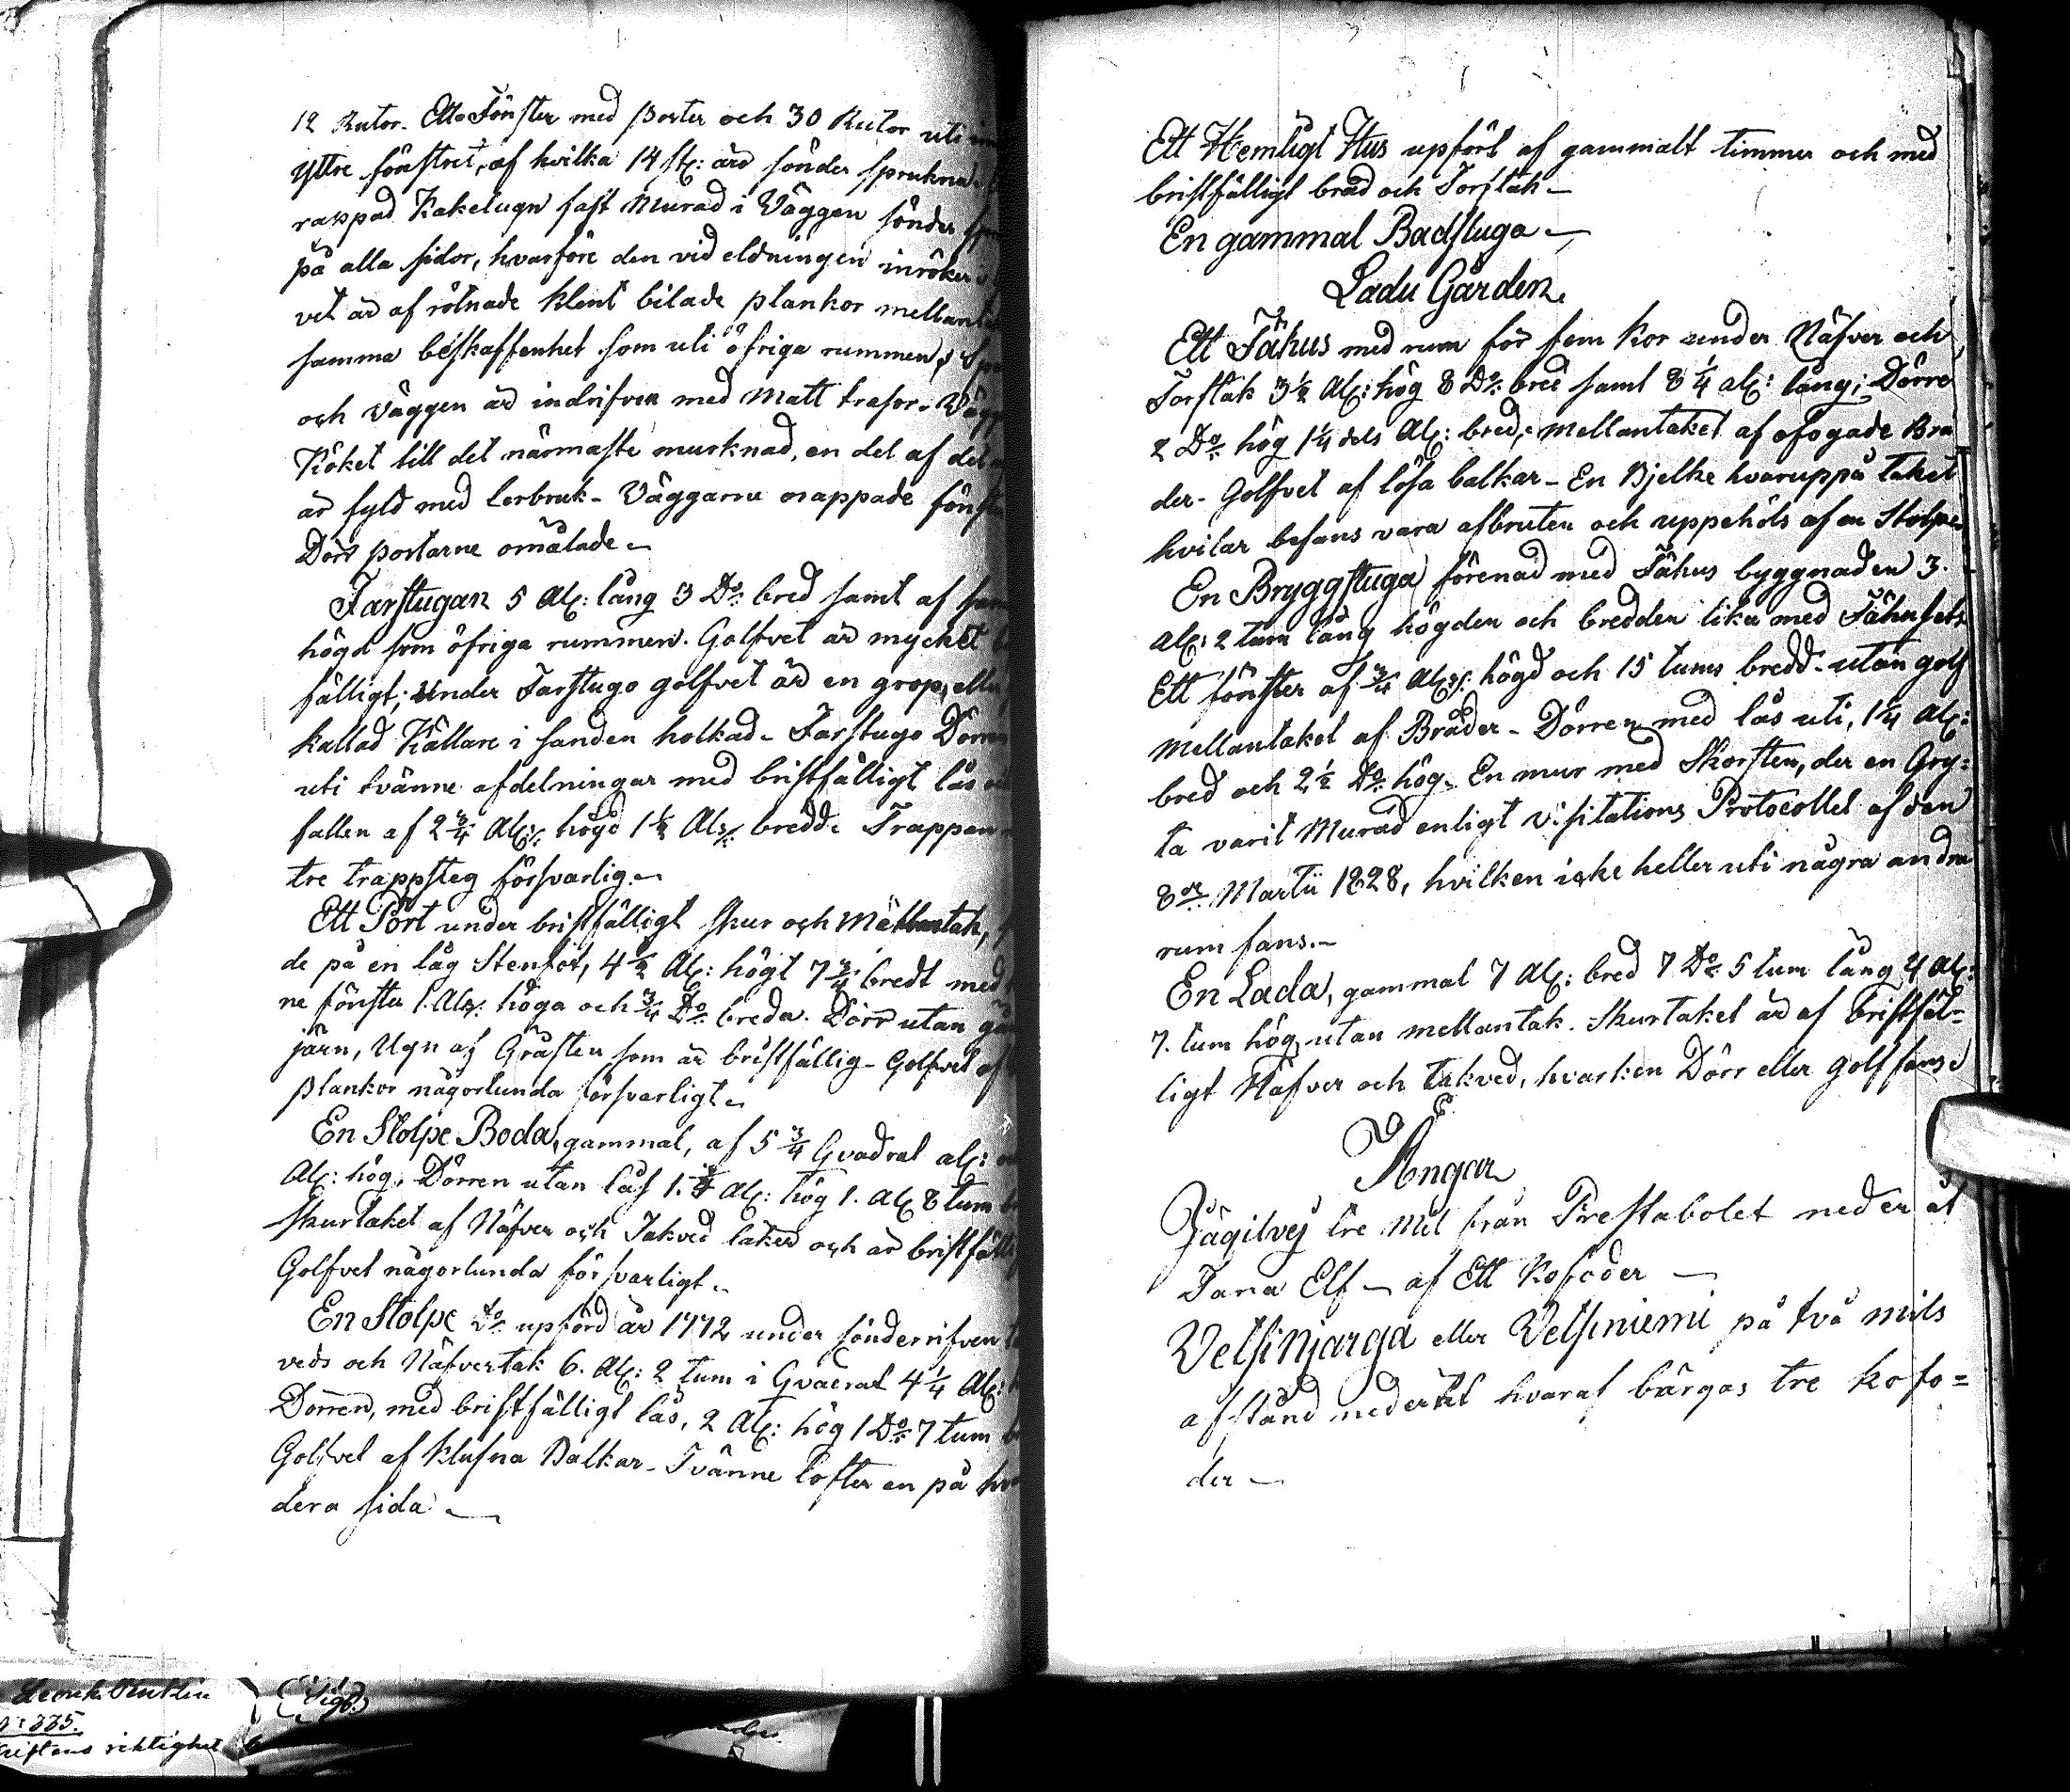 12 Rutor. Etto Fönster med Poster och 30 Rutor uti
Yttre fönstret, af hvilka 14 st: äro sönder spruckna.
rappad Kakelugn fast Murad i Väggen sönder
på alla sidor, hvarföre den vid eldningen inröker
vet är af rötnade klent bilade plankor mellan
samma beskaffenhet som uti öfriga rummen,
och väggen är indrifven med Matt trasor.
Köket till det närmaste murknad, en del af
är fyld med Lerbruk - Väggarne orappade
Dörr postarne omålade
Farstugan 5 Al: lång 3 Do: bred samt af
högd som öfriga rummen. Golfvet är mycket
fälligt; Under Farstugo golfvet är en grop,
kallad Källare i sanden holkad - Farstugo Dörren
uti tvänne afdelningar med bristfälligt lås
fallen af 2 3/4 Al: högd 1 1/2 Als: bredd. Trappan
tre trappsteg försvarlig.
Ett Pört under bristfälligt skur och Mellantak,
de på en låg Stenfot, 4 1/2 Al: högt 7 3/4 bredt med
ne fönster 1. Als: höga och 3/4 Do breda. Dörr utan
järn, Ugn af Gråsten som är bristfällig - Golfvet af
Plankor någorlunda försvarligt
En Stolpe Boda, gammal, af 5 3/4 Qvadrat al:
Al: hög. Dörren utan lås 1. 3/4 Al: hög 1. Al: 8 tum
skurtaket af Näfver och Takved läker och är
Golfvet någorlunda försvarligt
En Stolpe do: upförd år 1772 under sönderrifven
veds och Näfvertak 6. Al: 2 tum i Qvadrat 4 1/4 Al:
Dörren, med bristfälligt lås, 2 Al: hög 1 Do: 7 tum
Golfvet af klufna Balkar - Tvänne lofter en på
dera sida
Ett Hemligt Hus upfört af gammalt timmer och med
bristfälligt bräd och Torftak
En gammal Badstuga
Ladu Gården
Ett Fähus med rum för fem Kor under Näfver och
Torftak 3 1/2 Al: hög 8 Do: bred samt 8 1/4 al: lång; Dörre
2 Do: hög 1 1/4 dels Al: bred, mellantaket af ofogade Brä
der - Golfvet af lösa balkar - En Bjelke hvaruppå taket
hvilar befans vara afbruten och uppehöls af en Stolpe
En Bryggstuga förenad med Fähus byggnaden 3.
Al: 2 tum lång högden och bredden lika med Fähusets
Ett fönster af 3/4 Als: högd och 15 tums bredd - utan golf
Mellantaket af Bräder - Dörren med lås uti, 1 1/4 Al:
bred och 2 1/2 Do: hög. En mur med Skorsten, der en Gry=
ta varit Murad enligt Visitations Protocollet af den
8de Martii 1828, hvilken icke heller uti några andra
rum fans.
En Lada, gammal 7 Al: bred 7 Do: 5 tum lång 4 Al:
7. tum hög, utan mellantak. Skurtaket är af bristfäl=
ligt Näfver och takved, hvarken Dörr eller golf fans
Ängar
Jägilvej tre Mil från Prestabolet neder åt
Tana Elf - af Ett Kofoder
Vetsinjarga eller Vetsiniemi på två mils
afstånd nederåt hvaraf bärgas tre kofo=
der